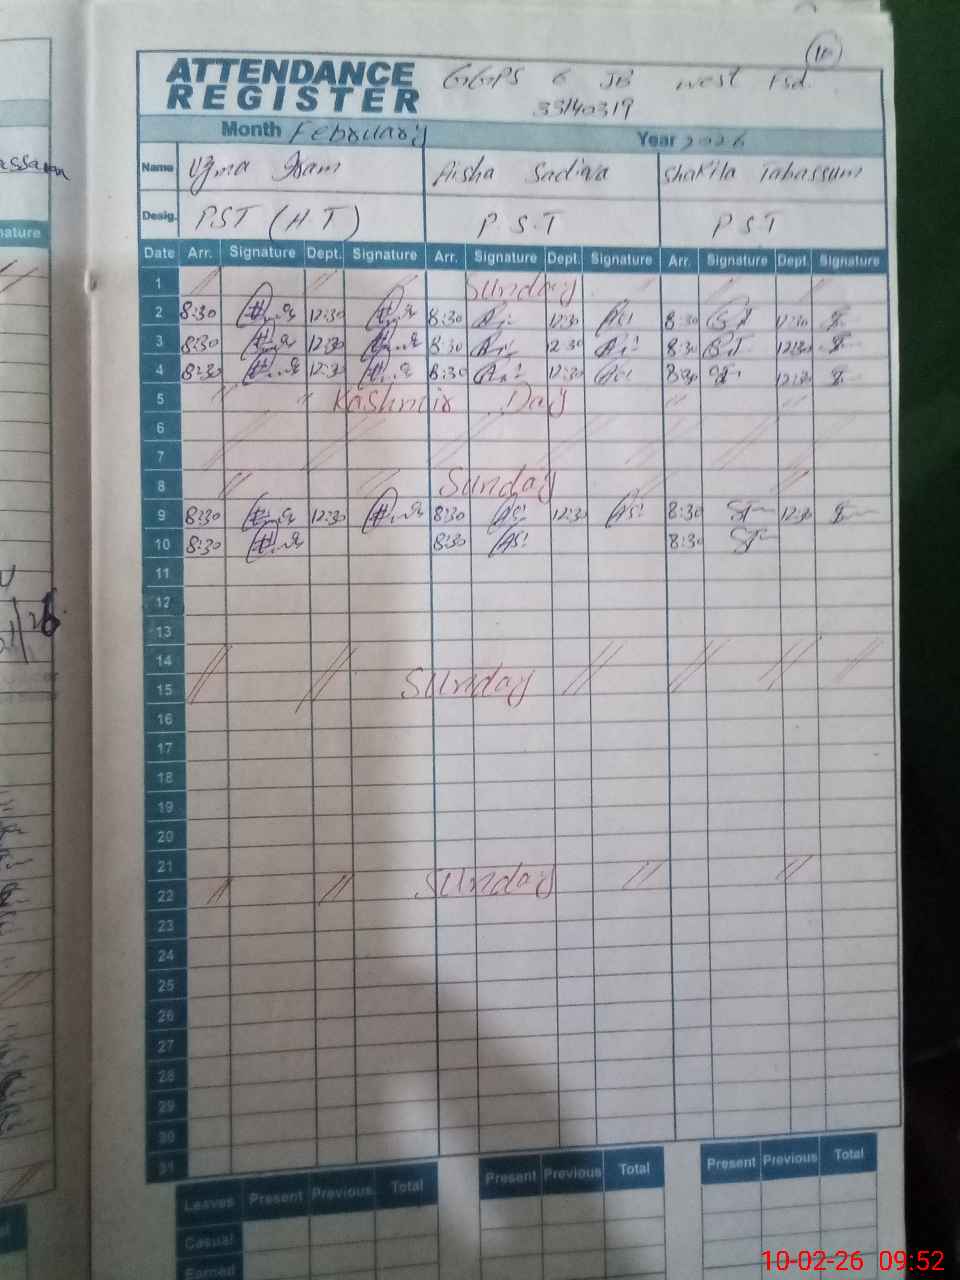 16
ATTENDANCE
REGISTER
GGPS 6 JB west Fsd.
33140319
Month February Year 2026
Name Uzma Aisha Sadiqa Shakila Tabassum
Desig. PST (HT) P.S.T PST
Date Arr. Signature Dept. Signature Arr. Signature Dept. Signature Arr. Signature Dept. Signature
1 Sunday
2 8:30 12:30 8:30 12:30 8:30 12:30
3 8:30 12:30 8:30 12:30 8:30 12:30
4 8:30 12:30 8:30 12:30 8:30 12:30
5 Kashmir Day
6
7
8 Sunday
9 8:30 12:30 8:30 12:30 8:30 12:30
10 8:30 8:30 8:30
11
12
13
14
15 Sunday
16
17
18
19
20
21
22 Sunday
23
24
25
26
27
28
29
30
31
Leaves Present Previous Total Present Previous Total Present Previous Total
Casual
Earned
10-02-26 09:52